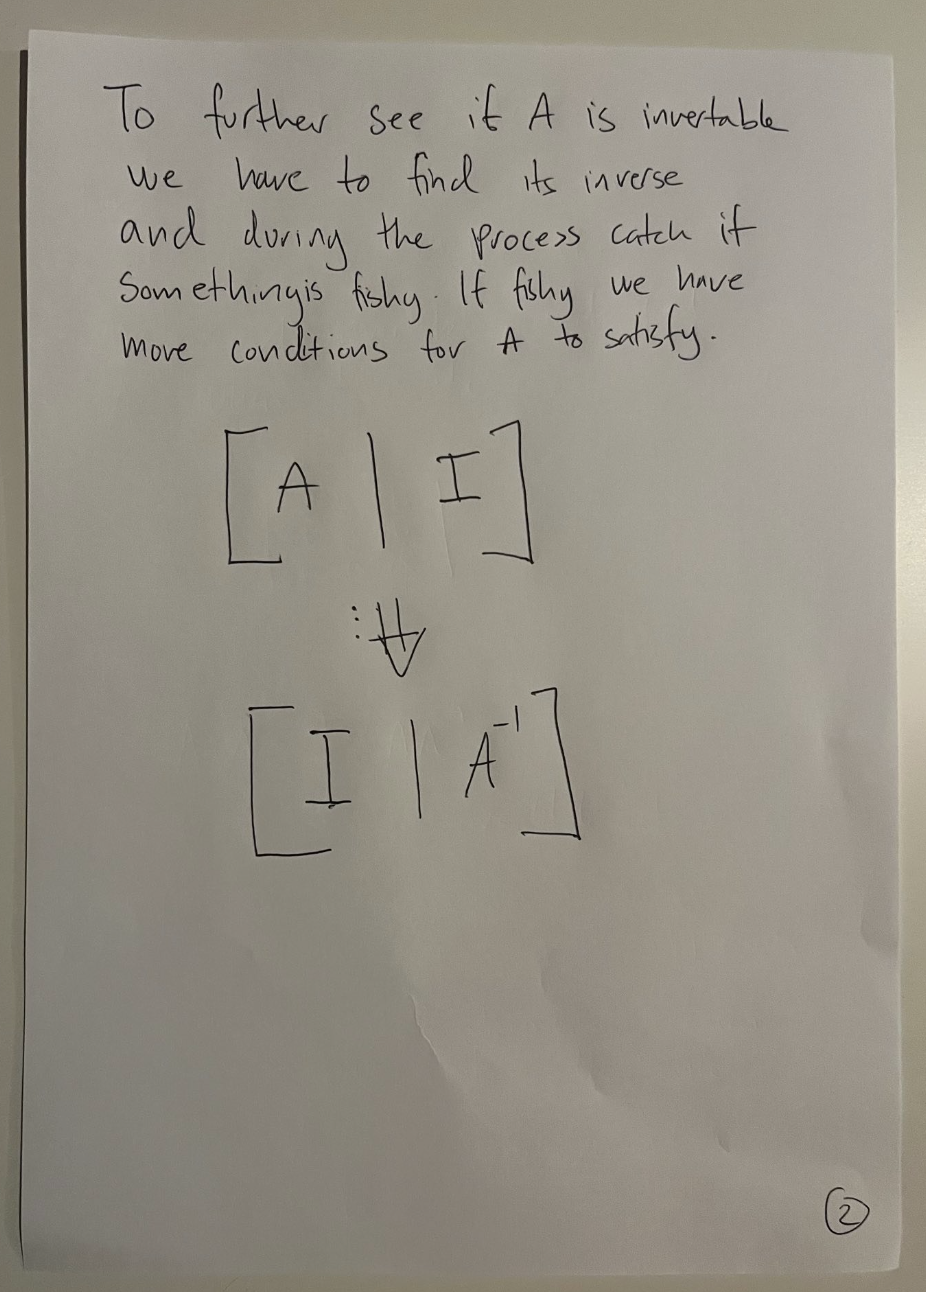 To further see if A is invertable
we have to find its inverse
and during the process catch if
Somethingis fishy. If fishy we have
more conditions for A to satisfy.
[A | I]
⋮⇓
[I | A⁻¹]
②